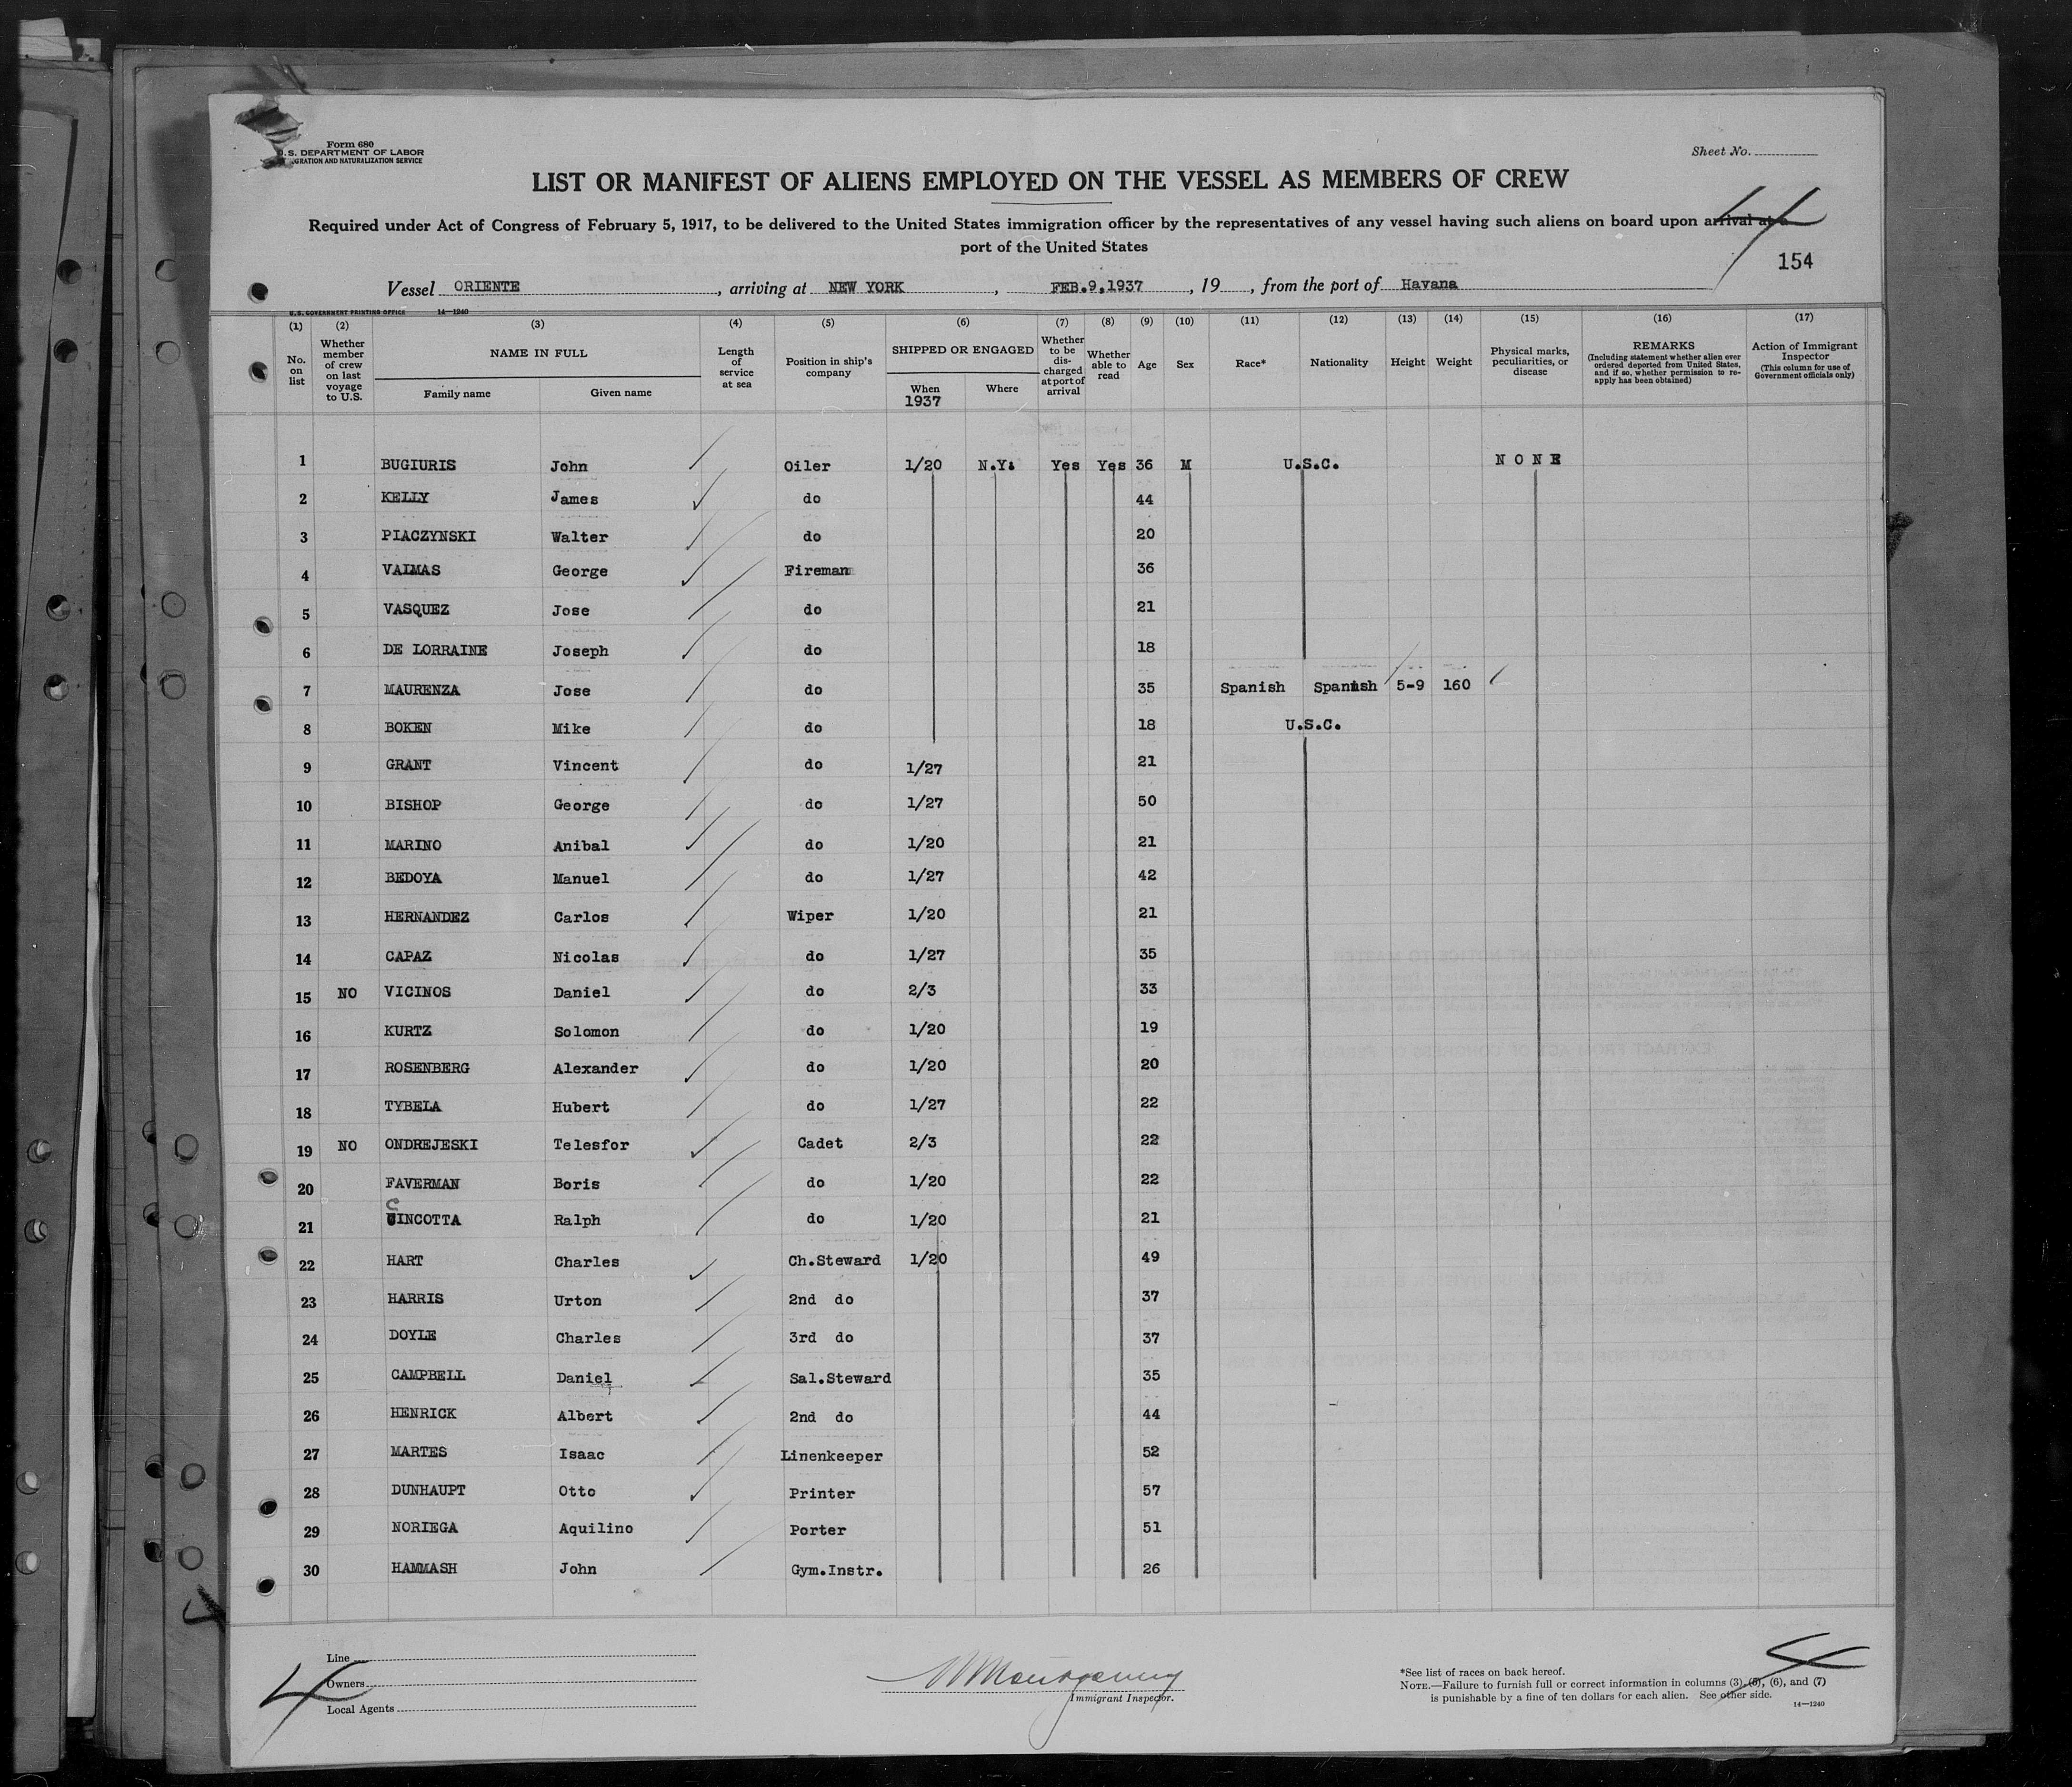 Form 680
U.S. DEPARTMENT OF LABOR
IMMIGRATION AND NATURALIZATION SERVICE
Sheet No.
LIST OR MANIFEST OF ALIENS EMPLOYED ON THE VESSEL AS MEMBERS OF CREW
Required under Act of Congress of February 5, 1917, to be delivered to the United States immigration officer by the representatives of any vessel having such aliens on board upon arrival at a
port of the United States
4
154
Vessel ORIENTE, arriving at NEW YORK, FEB.9,1937, 19, from the port of Havana
U.S. GOVERNMENT PRINTING OFFICE 14—1240
(1) (2) (3) (4) (5) (6) (7) (8) (9) (10) (11) (12) (13) (14) (15) (16) (17)
No. on list
Whether member of crew on last voyage to U.S.
NAME IN FULL
Family name
Given name
Length of service at sea
Position in ship's company
SHIPPED OR ENGAGED
When 1937
Where
Whether to be discharged at port of arrival
Whether able to read
Age
Sex
Race*
Nationality
Height
Weight
Physical marks, peculiarities, or disease
REMARKS
(Including statement whether alien ever ordered deported from United States, and if so, whether permission to reapply has been obtained)
Action of Immigrant Inspector
(This column for use of Government officials only)
1 BUGIURIS John Oiler 1/20 N.Y. Yes Yes 36 M U.S.C. NONE
2 KELLY James do 44
3 PIACZYNSKI Walter do 20
4 VAIMAS George Fireman 36
5 VASQUEZ Jose do 21
6 DE LORRAINE Joseph do 18
7 MAURENZA Jose do 35 Spanish Spanish 5-9 160
8 BOKEN Mike do 18 U.S.C.
9 GRANT Vincent do 1/27 21
10 BISHOP George do 1/27 50
11 MARINO Anibal do 1/20 21
12 BEDOYA Manuel do 1/27 42
13 HERNANDEZ Carlos Wiper 1/20 21
14 CAPAZ Nicolas do 1/27 35
15 NO VICINOS Daniel do 2/3 33
16 KURTZ Solomon do 1/20 19
17 ROSENBERG Alexander do 1/20 20
18 TYBELA Hubert do 1/27 22
19 NO ONDREJESKI Telesfor Cadet 2/3 22
20 FAVERMAN Boris do 1/20 22
21 CINCOTTA Ralph do 1/20 21
22 HART Charles Ch.Steward 1/20 49
23 HARRIS Urton 2nd do 37
24 DOYLE Charles 3rd do 37
25 CAMPBELL Daniel Sal.Steward 35
26 HENRICK Albert 2nd do 44
27 MARTES Isaac Linenkeeper 52
28 DUNHAUPT Otto Printer 57
29 NORIEGA Aquilino Porter 51
30 HAMMASH John Gym.Instr. 26
Line
Owners
Local Agents
4
Montgomery
Immigrant Inspector.
4
*See list of races on back hereof.
NOTE.—Failure to furnish full or correct information in columns (3), (5), (6), and (7)
is punishable by a fine of ten dollars for each alien. See other side.
14—1240